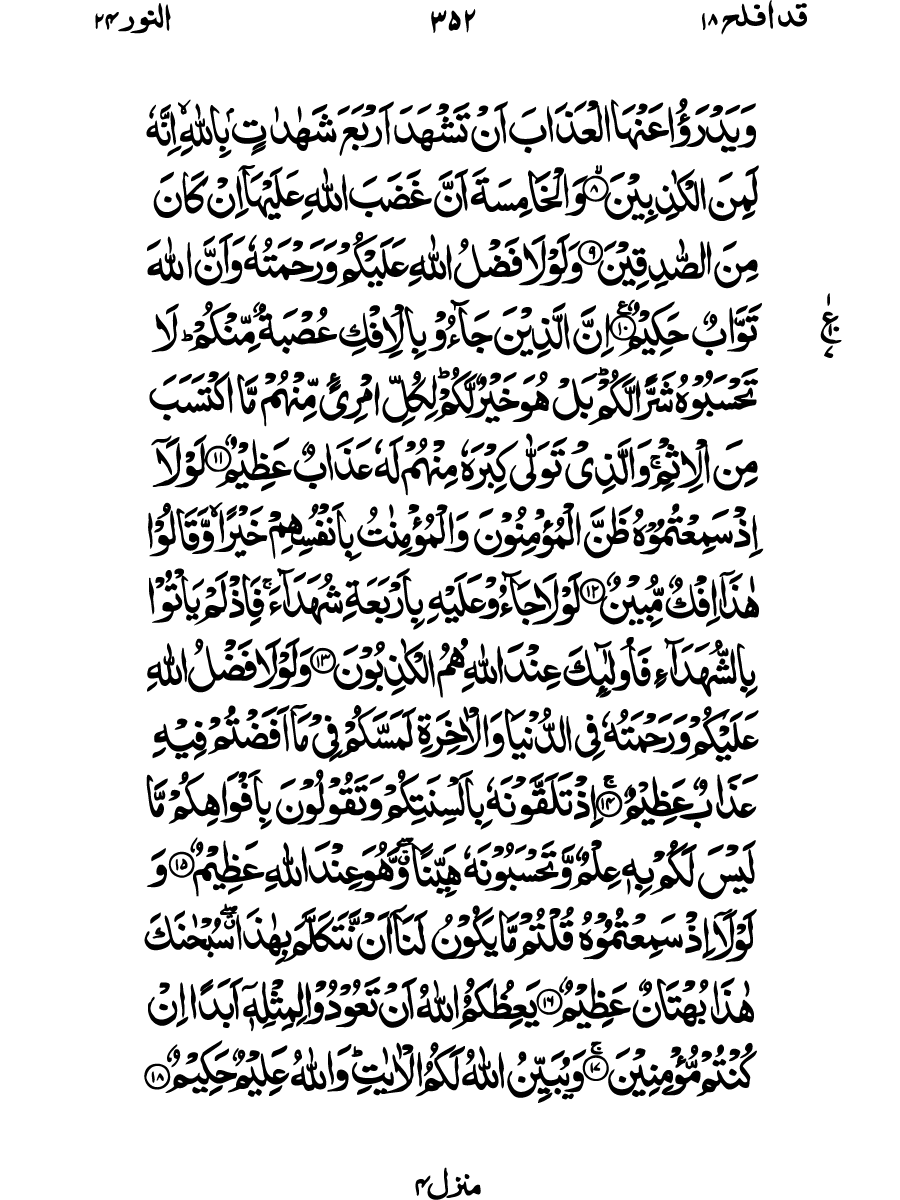 قد افلح ١٨ ٣٥٢ النور ٢٤
وَيَدْرَؤُا عَنْهَا الْعَذَابَ اَنْ تَشْهَدَ اَرْبَعَ شَهٰدٰتٍۭ بِاللّٰهِ ۙ اِنَّهٗ
لَمِنَ الْكٰذِبِيْنَ ۙ﴿۸﴾ وَ الْخَامِسَةَ اَنَّ غَضَبَ اللّٰهِ عَلَيْهَاۤ اِنْ كَانَ
مِنَ الصّٰدِقِيْنَ ﴿۹﴾ وَ لَوْ لَا فَضْلُ اللّٰهِ عَلَيْكُمْ وَ رَحْمَتُهٗ وَ اَنَّ اللّٰهَ
تَوَّابٌ حَكِيْمٌ ﴿۱۰﴾ؒ اِنَّ الَّذِيْنَ جَآءُوْ بِالْاِفْكِ عُصْبَةٌ مِّنْكُمْ ؕ لَا
تَحْسَبُوْهُ شَرًّا لَّكُمْ ؕ بَلْ هُوَ خَيْرٌ لَّكُمْ ؕ لِكُلِّ امْرِئٍ مِّنْهُمْ مَّا اكْتَسَبَ
مِنَ الْاِثْمِ ۚ وَ الَّذِيْ تَوَلّٰى كِبْرَهٗ مِنْهُمْ لَهٗ عَذَابٌ عَظِيْمٌ ﴿۱۱﴾ لَوْ لَاۤ
اِذْ سَمِعْتُمُوْهُ ظَنَّ الْمُؤْمِنُوْنَ وَ الْمُؤْمِنٰتُ بِاَنْفُسِهِمْ خَيْرًا ۙ وَّ قَالُوْا
هٰذَاۤ اِفْكٌ مُّبِيْنٌ ﴿۱۲﴾ لَوْ لَا جَآءُوْ عَلَيْهِ بِاَرْبَعَةِ شُهَدَآءَ ۚ فَاِذْ لَمْ يَاْتُوْا
بِالشُّهَدَآءِ فَاُولٰٓئِكَ عِنْدَ اللّٰهِ هُمُ الْكٰذِبُوْنَ ﴿۱۳﴾ وَ لَوْ لَا فَضْلُ اللّٰهِ
عَلَيْكُمْ وَ رَحْمَتُهٗ فِي الدُّنْيَا وَ الْاٰخِرَةِ لَمَسَّكُمْ فِيْ مَاۤ اَفَضْتُمْ فِيْهِ
عَذَابٌ عَظِيْمٌ ۚ﴿۱۴﴾ اِذْ تَلَقَّوْنَهٗ بِاَلْسِنَتِكُمْ وَ تَقُوْلُوْنَ بِاَفْوَاهِكُمْ مَّا
لَيْسَ لَكُمْ بِهٖ عِلْمٌ وَّ تَحْسَبُوْنَهٗ هَيِّنًا ۖۗ وَّ هُوَ عِنْدَ اللّٰهِ عَظِيْمٌ ﴿۱۵﴾ وَ
لَوْ لَاۤ اِذْ سَمِعْتُمُوْهُ قُلْتُمْ مَّا يَكُوْنُ لَنَاۤ اَنْ نَّتَكَلَّمَ بِهٰذَا ۖۗ سُبْحٰنَكَ
هٰذَا بُهْتَانٌ عَظِيْمٌ ﴿۱۶﴾ يَعِظُكُمُ اللّٰهُ اَنْ تَعُوْدُوْا لِمِثْلِهٖۤ اَبَدًا اِنْ
كُنْتُمْ مُّؤْمِنِيْنَ ۚ﴿۱۷﴾ وَ يُبَيِّنُ اللّٰهُ لَكُمُ الْاٰيٰتِ ؕ وَ اللّٰهُ عَلِيْمٌ حَكِيْمٌ ﴿۱۸﴾
منزل ٤